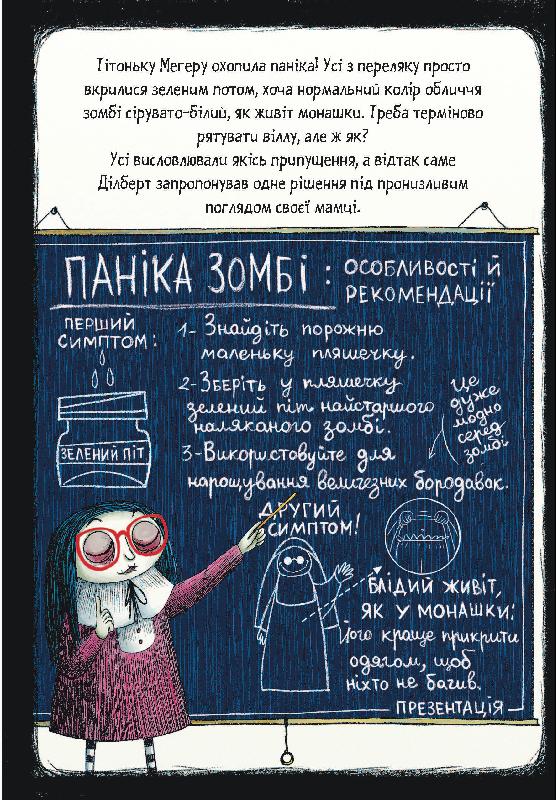 Тітоньку Мегеру охопила паніка! Усі з переляку просто
вкрилися зеленим потом, хоча нормальний колір обличчя
зомбі сірувато-білий, як живіт монашки. Треба терміново
рятувати віллу, але ж як?
Усі висловлювали якісь припущення, а відтак саме
Ділберт запропонував одне рішення під пронизливим
поглядом своєї мамці.
ПАНІКА ЗОМБІ : ОСОБЛИВОСТІ Й
РЕКОМЕНДАЦІЇ
ПЕРШИЙ
СИМПТОМ:
ЗЕЛЕНИЙ ПІТ
1- Знайдіть порожню
маленьку пляшечку.
2-Зберіть у пляшечку
зелений піт найстаршого
наляканого зомбі.
3-Використовуйте для
нарощування величезних бородавок.
Це
дуже
модно
серед
зомбі
ДРУГИЙ
СИМПТОМ!
БЛІДИЙ ЖИВІТ,
ЯК У МОНАШКИ:
Його краще прикрити
одягом, щоб
ніхто не бачив.
ПРЕЗЕНТАЦІЯ